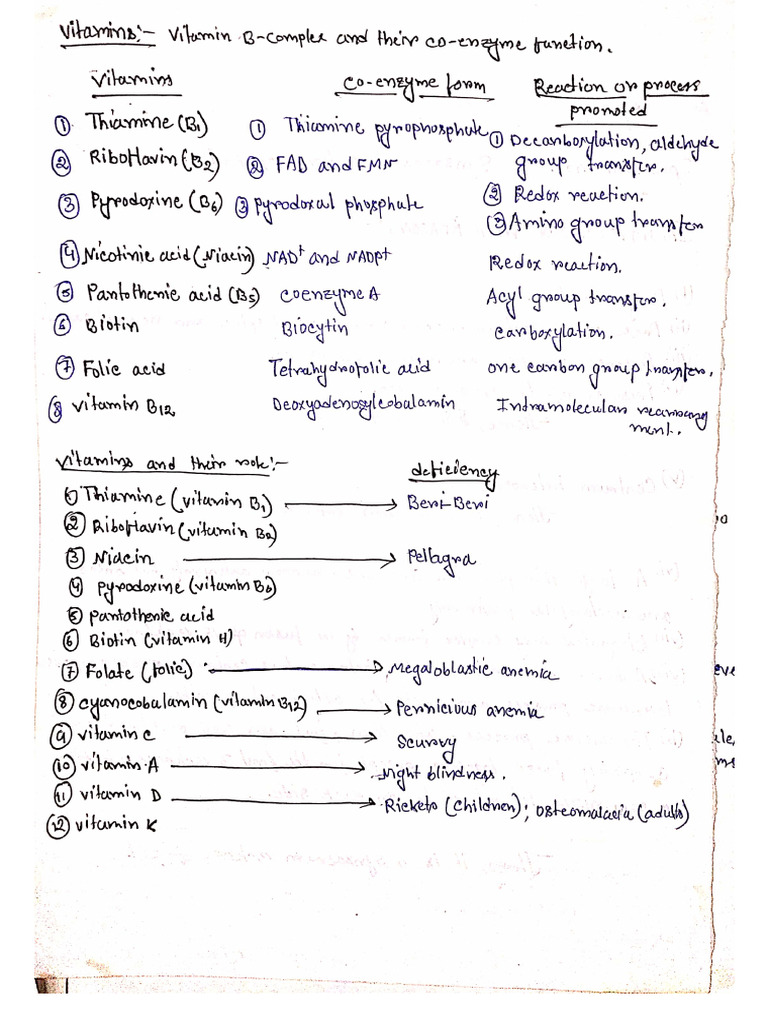 Vitamins:- Vitamin B-Complex and their co-enzyme function.
Vitamins co-enzyme form Reaction or process promoted
① Thiamine (B1) ① Thiamine pyrophosphate ① Decarboxylation, aldehyde group transfer.
② Riboflavin (B2) ② FAD and FMN ② Redox reaction.
③ Pyrodoxine (B6) ③ Pyrodoxal phosphate ③ Amino group transfer
④ Nicotinic acid (Niacin) NAD+ and NADP+ Redox reaction.
⑤ Pantothenic acid (B5) coenzyme A Acyl group transfer.
⑥ Biotin Biocytin carboxylation.
⑦ Folic acid Tetrahydrofolic acid one carbon group transfer.
⑧ vitamin B12 Deoxyadenosylcobalamin Intramolecular rearrangment.
Vitamins and their role:- deficiency
① Thiamine (vitamin B1) → Beri-Beri
② Riboflavin (vitamin B2)
③ Niacin → Pellagra
④ pyrodoxine (vitamin B6)
⑤ pantothenic acid
⑥ Biotin (vitamin H)
⑦ Folate (folic) → Megaloblastic anemia
⑧ cyanocobalamin (vitamin B12) → Pernicious anemia
⑨ vitamin c → Scurvy
⑩ vitamin A → Night blindness.
⑪ vitamin D → Rickets (children); osteomalacia (adults)
⑫ vitamin K